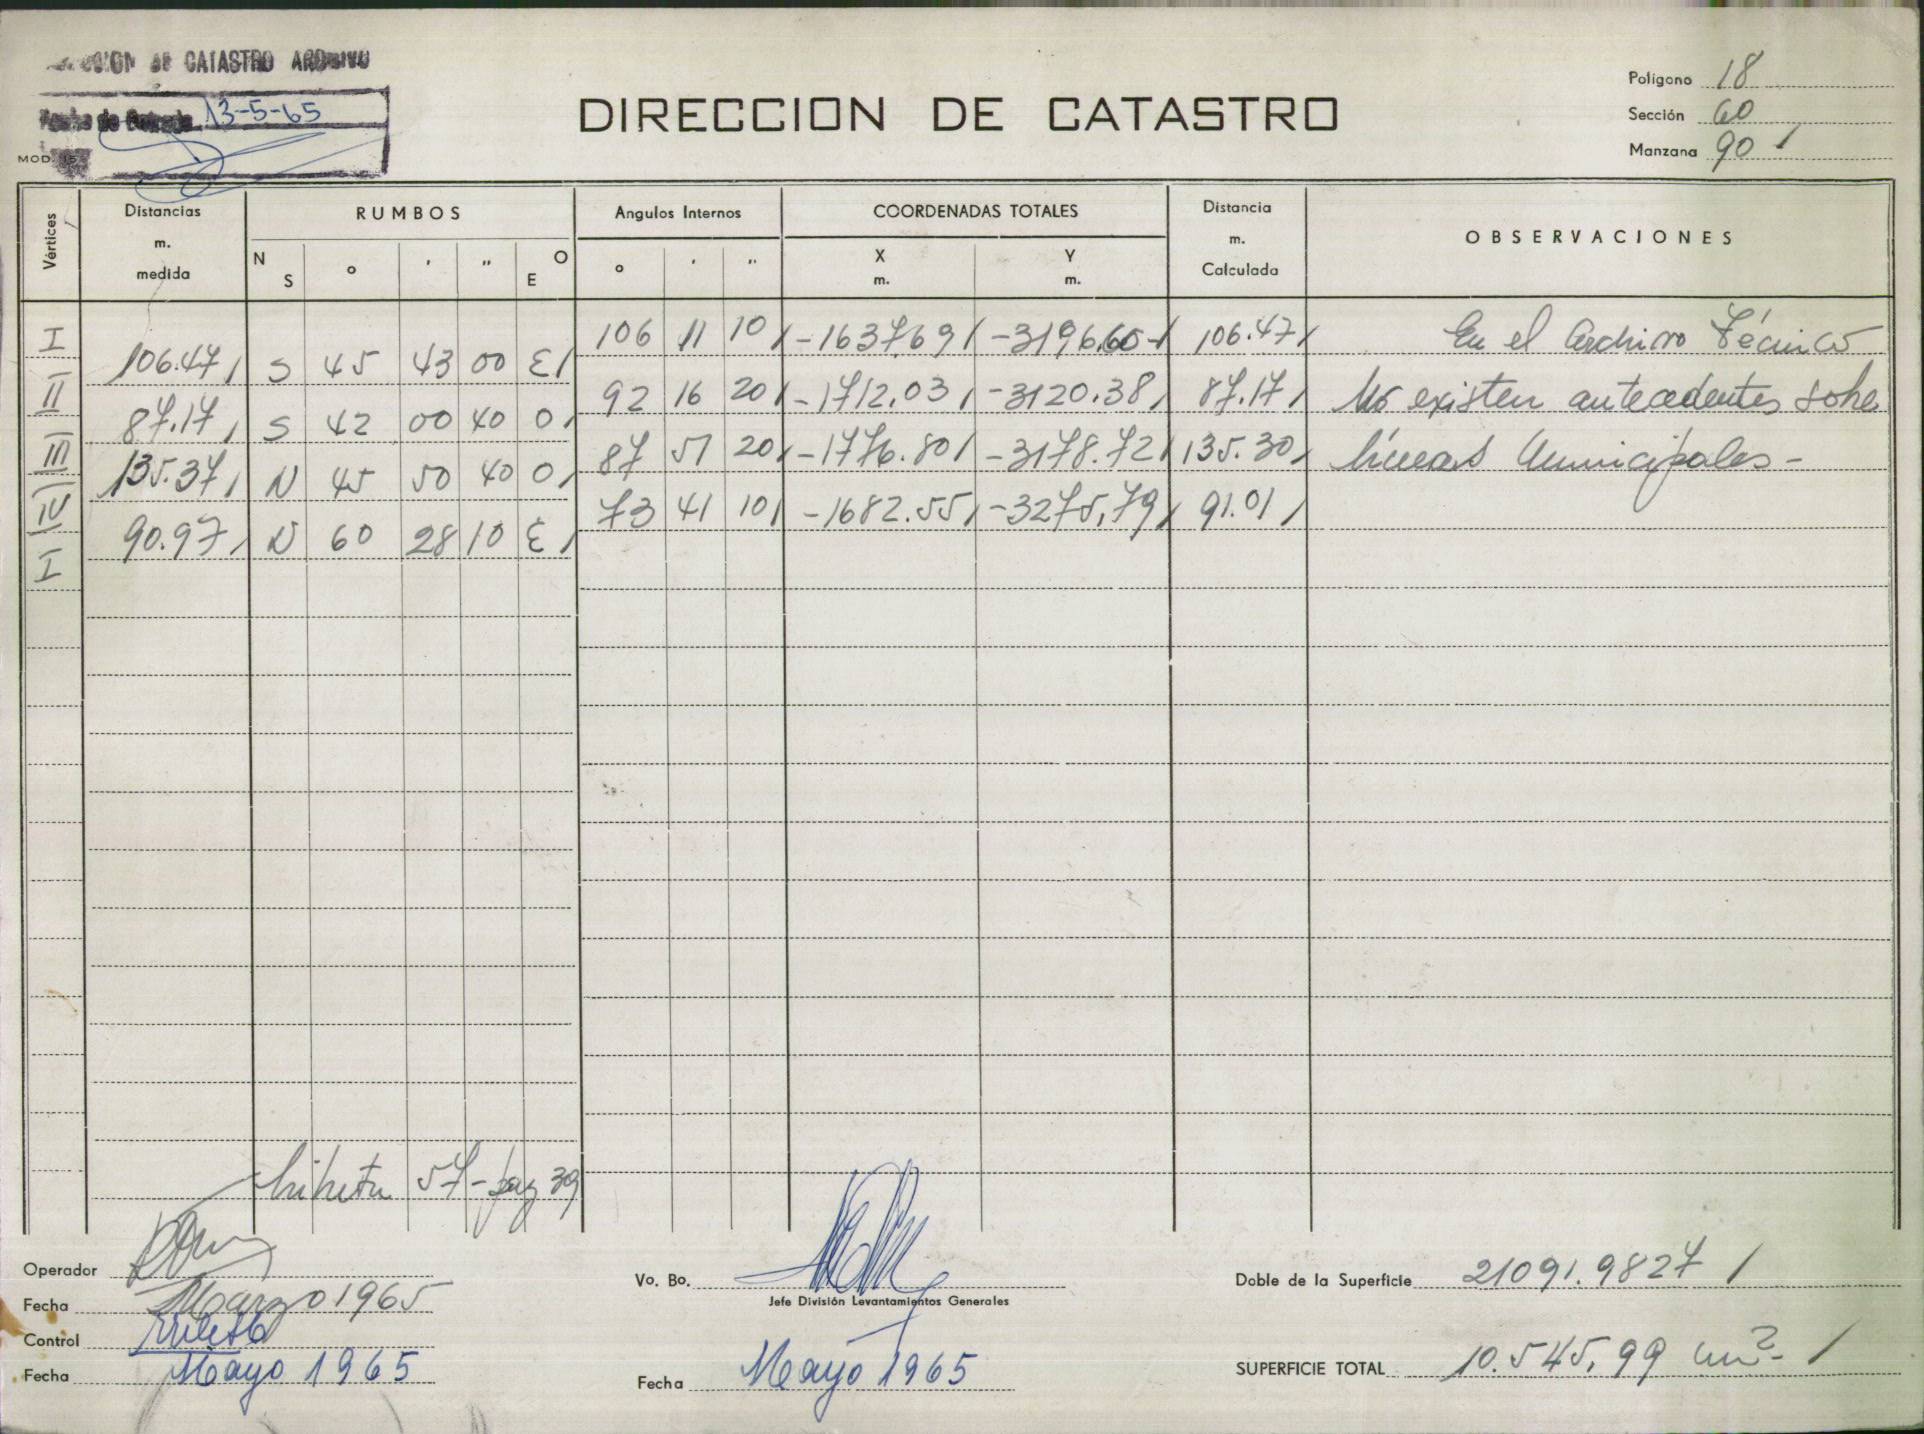 DE CATASTRO ARCHIVO
Fecha de Entrada 13-5-65
MOD. 15
DIRECCION DE CATASTRO
Polígono 18
Sección 60
Manzana 90
Vértices
Distancias m. medida
RUMBOS
N S ° ' " O E
Angulos Internos
° ' "
COORDENADAS TOTALES
X m. Y m.
Distancia m. Calculada
OBSERVACIONES
I 106 11 10 -1637,69 -3196,60 106.47 En el Archivo Técnico
106.47 S 45 43 00 E
II 92 16 20 -1712.03 -3120.38 87.17 No existen antecedentes sobre
87.17 S 42 00 40 O
III 87 51 20 -1776.80 -3178.72 135.30 líneas Municipales-
135.37 N 45 50 40 O
IV 73 41 10 -1682.55 -3275,79 91.01
90.97 N 60 28 10 E
I
Libreta 57-pag 39
Operador
Fecha Marzo 1965
Control
Fecha Mayo 1965
Vo. Bo.
Jefe División Levantamientos Generales
Fecha Mayo 1965
Doble de la Superficie 21091.9827
SUPERFICIE TOTAL 10.545,99 m2-